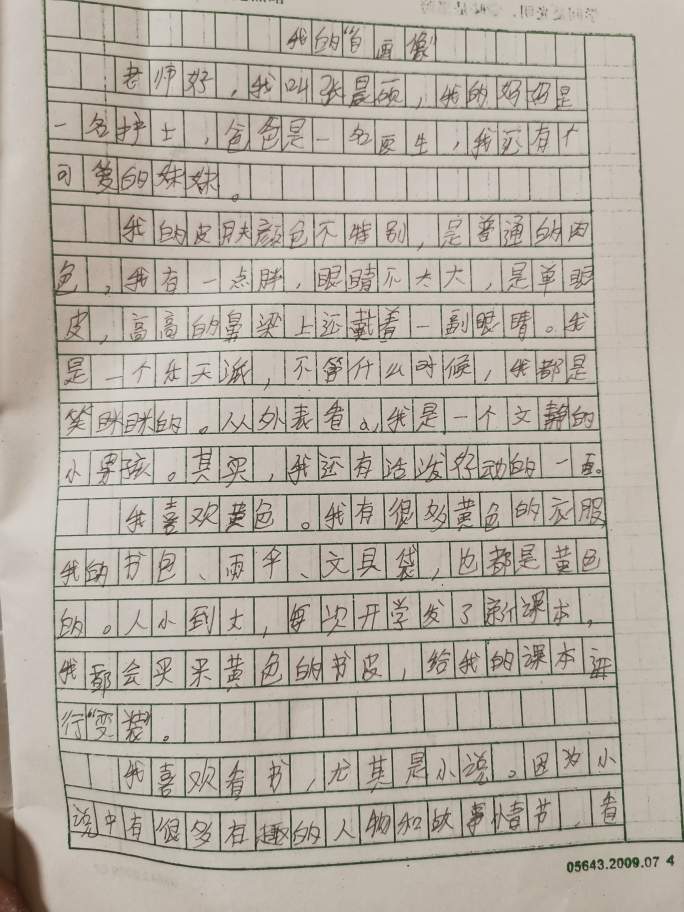 我的“自画像”
老师好，我叫张晨硕，我的妈妈是
一名护士，爸爸是一名医生，我还有个
可爱的妹妹。
我的皮肤颜色不特别，是普通的肉
色，我有一点胖，眼睛不太大，是单眼
皮，高高的鼻梁上还戴着一副眼睛。我
是一个乐天派，不管什么时候，我都是
笑眯眯的。从外表看，我是一个文静的
小男孩。其实，我还有活泼好动的一面。
我喜欢黄色。我有很多黄色的衣服
我的书包、雨伞、文具袋，也都是黄色
的。人小到大，每次开学发了新课本，
我都会买来黄色的书皮，给我的课本进
行“变装”。
我喜欢看书，尤其是小说。因为小
说中有很多有趣的人物和故事情节，看
05643.2009.07 4